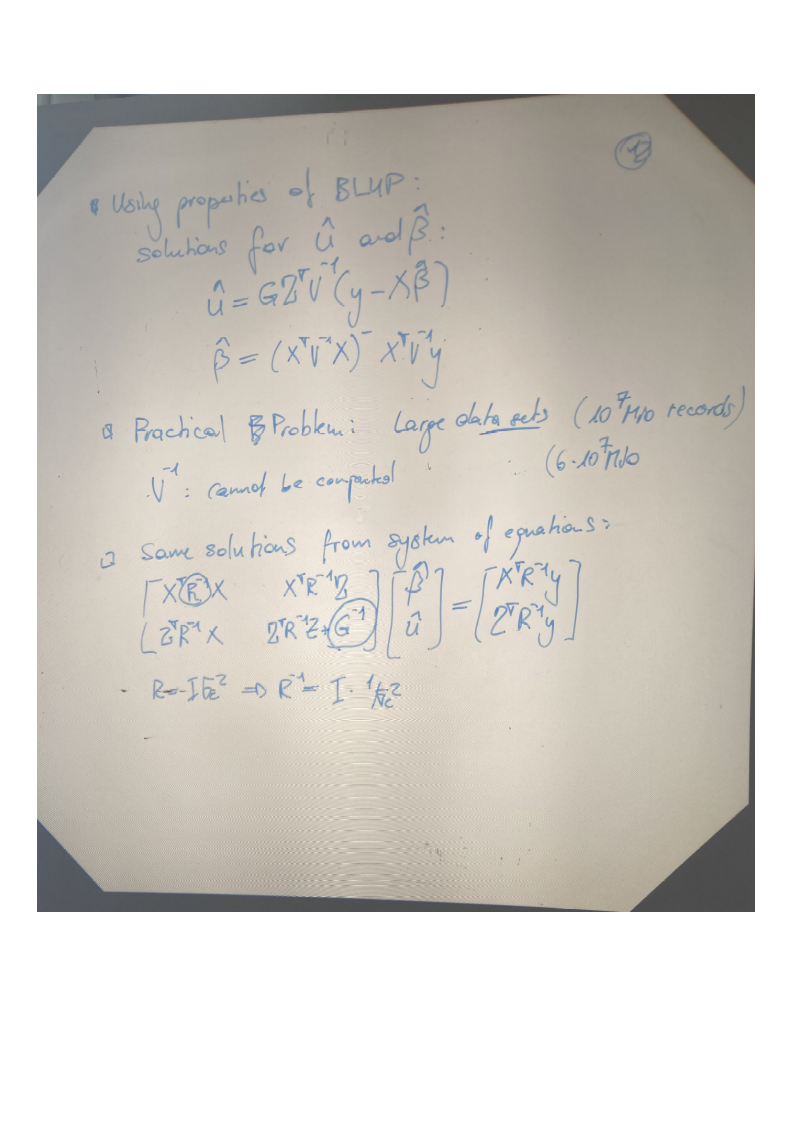 12
Using properties of BLUP:
solutions for û and β̂:
û = GZᵀV⁻¹(y - Xβ̂)
β̂ = (XᵀV⁻¹X)⁻ XᵀV⁻¹y
Practical Problem: Large data sets (10⁷ Mio records)
V⁻¹: cannot be computed (6·10⁷ Mio
Same solutions from system of equations:
[XᵀR⁻¹X XᵀR⁻¹Z] [β̂] = [XᵀR⁻¹y]
[ZᵀR⁻¹X ZᵀR⁻¹Z+G⁻¹] [û] [ZᵀR⁻¹y]
R = Iσₑ² ⇒ R⁻¹ = I · 1/σₑ²